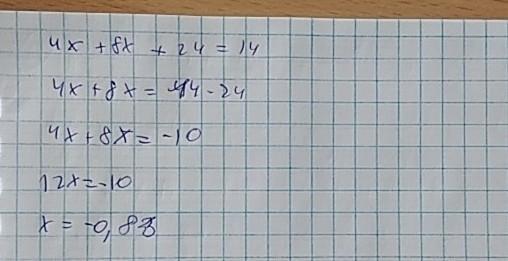 4x + 8x + 24 = 14
4x + 8x = 14 - 24
4x + 8x = -10
12x = -10
x = -0,83